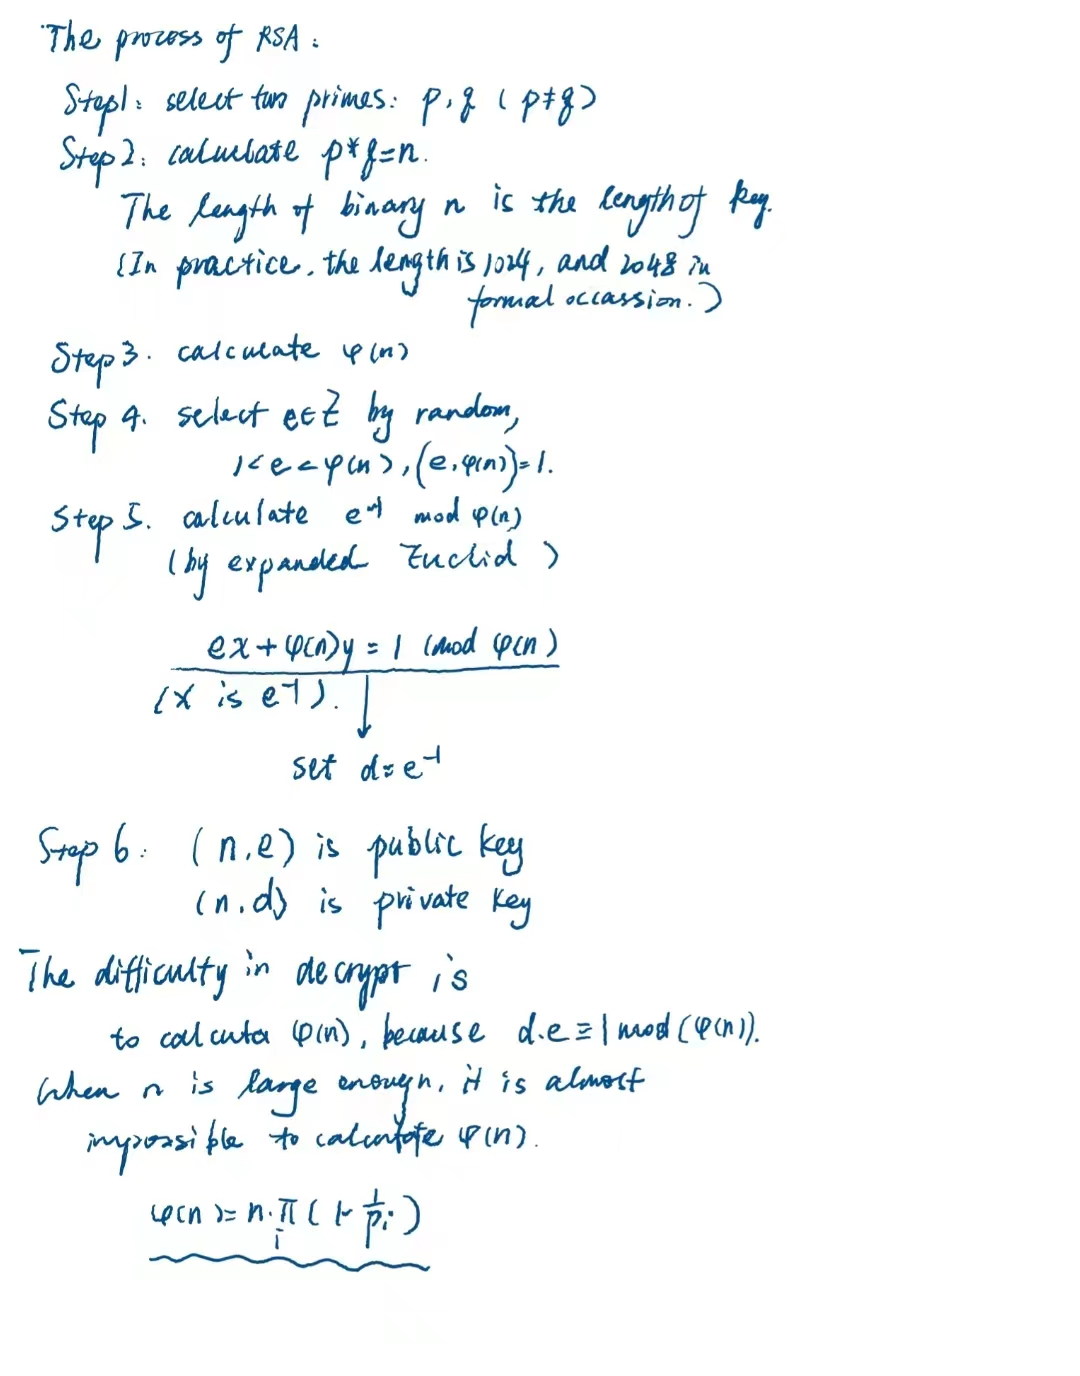 The process of RSA:
Step1: select two primes: p, q (p≠q)
Step 2: calculate p*q=n.
The length of binary n is the length of key.
(In practice, the length is 1024, and 2048 in
formal occassion.)
Step 3. calculate φ(n)
Step 4. select e∈Z by random,
1<e<φ(n), (e,φ(n))=1.
Step 5. calculate e⁻¹ mod φ(n)
(by expanded Euclid)
ex+φ(n)y=1 (mod φ(n)
(x is e⁻¹).
set d=e⁻¹
Step 6: (n,e) is public key
(n,d) is private key
The difficulty in decrypt is
to φ(n), because d.e≡1 mod(φ(n)).
When n is large enough, it is almost
impossible to calculate φ(n).
φ(n)=n·∏ᵢ(1-1/pᵢ)